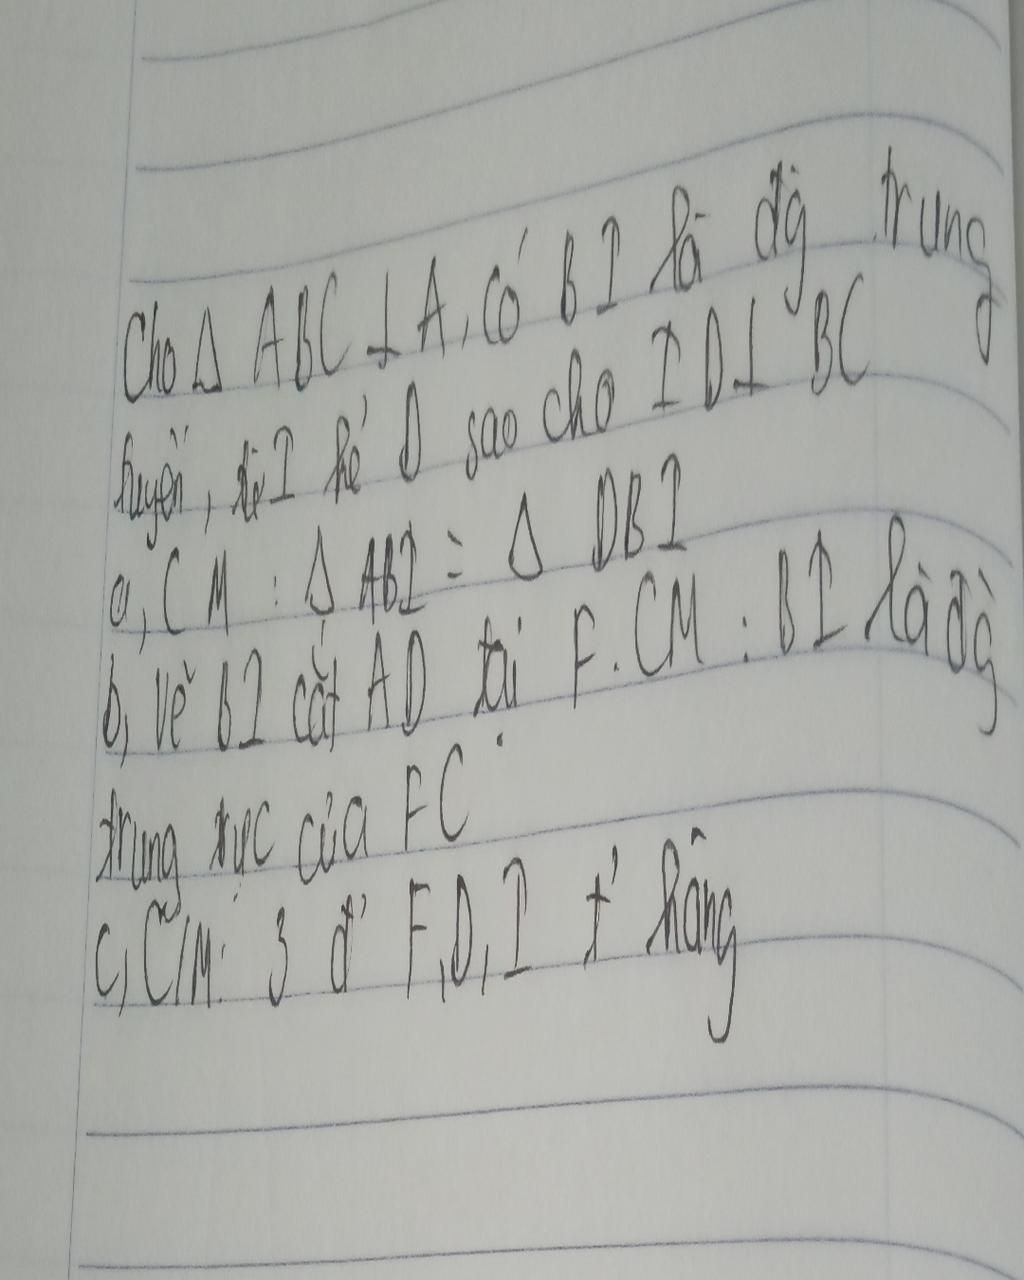 Cho Δ ABC ⊥ A, có BI là đg trung
tuyến, từ I kẻ D sao cho ID ⊥ BC
a, CM : Δ ABI = Δ DBI
b, Vẽ BI cắt AD tại F. CM : BI là đg
trung trực của FC
c, C/M: 3 đ' F, D, I t' hàng